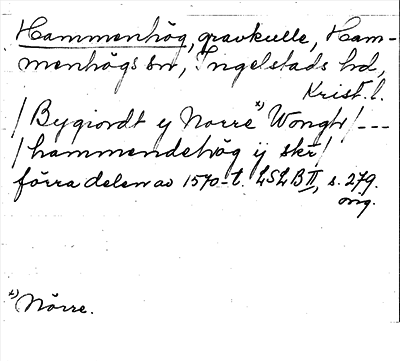 Hammenhög, gravkulle, Ham-
menhögs sn, Ingelstads hd,
Krist. l.
/Bygiordt ӱ Norre x) Wongh/---
/hammendehög ӱ skř/
förra delen av 1570-t. LSLB II, s. 279.
orig.
x) Nörre.